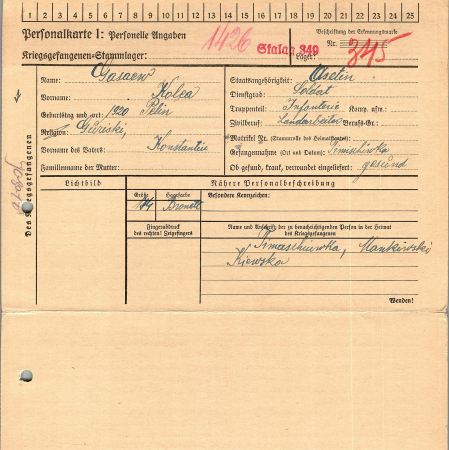 1 2 3 4 5 6 7 8 9 10 11 12 13 14 15 16 17 18 19 20 21 22 23 24 25
Personalkarte I: Personelle Angaben
Beschriftung der Erkennungsmarke
1426
Nr. 345
Kriegsgefangenen-Stammlager: Stalag 349
Lager:
Des Kriegsgefangenen
Name: Gasaew
Vorname: Kolea
Geburtstag und -ort: 1920 Pelin
Religion:
Vorname des Vaters: Konstantin
Familienname der Mutter:
Staatsangehörigkeit: Asetin
Dienstgrad: Soldat
Truppenteil: Infanterie Komp. usw.:
Zivilberuf: Landarbeiter Berufs-Gr.:
Matrikel Nr. (Stammrolle des Heimatstaates):
Gefangennahme (Ort und Datum): Timaschiwka
Ob gesund, krank, verwundet eingeliefert: gesund
Lichtbild
Nähere Personalbeschreibung
Größe
Haarfarbe
Besondere Kennzeichen:
Brunett
Fingerabdruck
des rechten! Zeigefingers
Name und Anschrift der zu benachrichtigenden Person in der Heimat
des Kriegsgefangenen
Timaschiuwka, Mankiwski
Kiewska
Wenden!